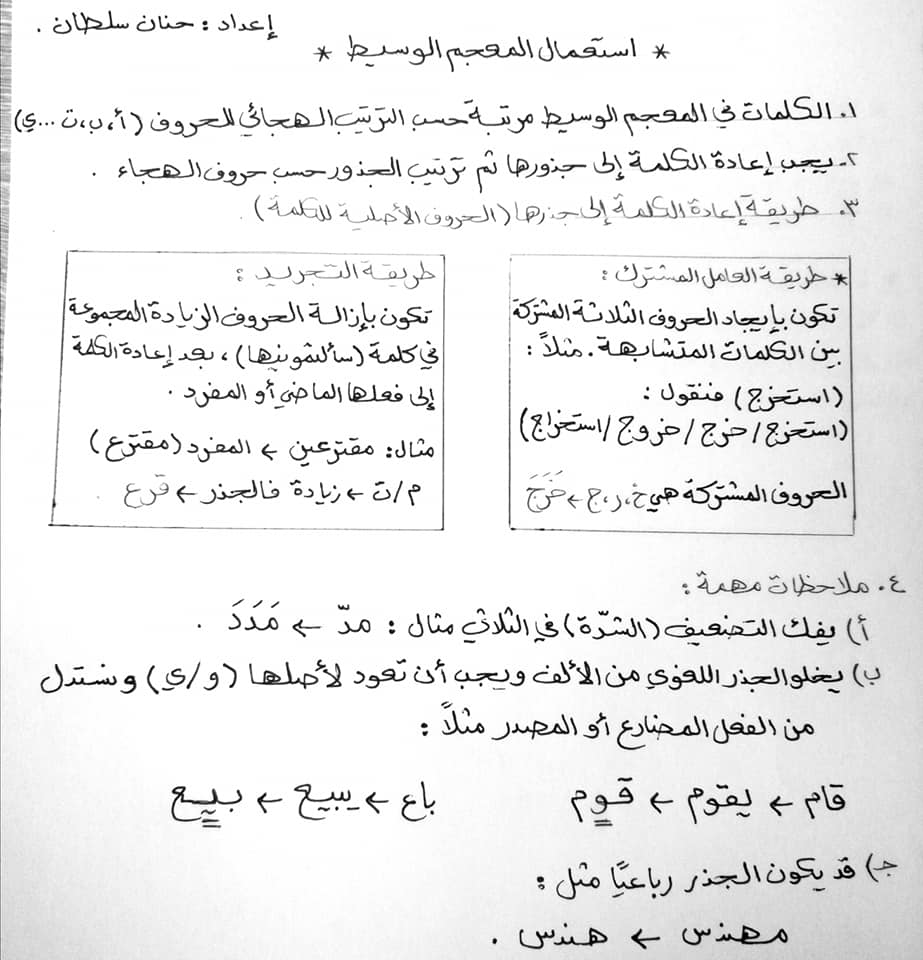 إعداد : حنان سلطان .
* استعمال المعجم الوسيط *
١. الكلمات في المعجم الوسيط مرتبة حسب الترتيب الهجائي للحروف (أ،ب،ت ...ي)
٢- يجب إعادة الكلمة إلى جذورها ثم ترتيب الجذور حسب حروف الهجاء .
٣. طريقة إعادة الكلمة إلى جذرها (الحروف الأصلية للكلمة) .
* طريقة العامل المشترك :
تكون بإيجاد الحروف الثلاثة المشتركة
بين الكلمات المتشابهة . مثلاً :
(استخرج) فنقول :
(استخرج / خرج / خروج / استخراج)
الحروف المشتركة هي خ،ر،ج ← خَرَجَ
طريقة التجريد :
تكون بإزالة الحروف الزيادة المجموعة
في كلمة (سألتمونيها) ، بعد إعادة الكلمة
إلى فعلها الماضي أو المفرد .
مثال: مقترعين ← المفرد (مقترع)
م/ت ← زيادة فالجذر ← قرع .
٤. ملاحظات مهمة :
أ) يفك التضعيف (الشدّة) في الثلاثي مثال : مدّ ← مَدَدَ .
ب) يخلو الجذر اللغوي من الألف ويجب أن تعود لأصلها (و/ي) ونستدل
من الفعل المضارع أو المصدر مثلاً :
قام ← يقوم ← قوم
باع ← يبيع ← بيع
جـ) قد يكون الجذر رباعيًا مثل :
مهندس ← هندس .